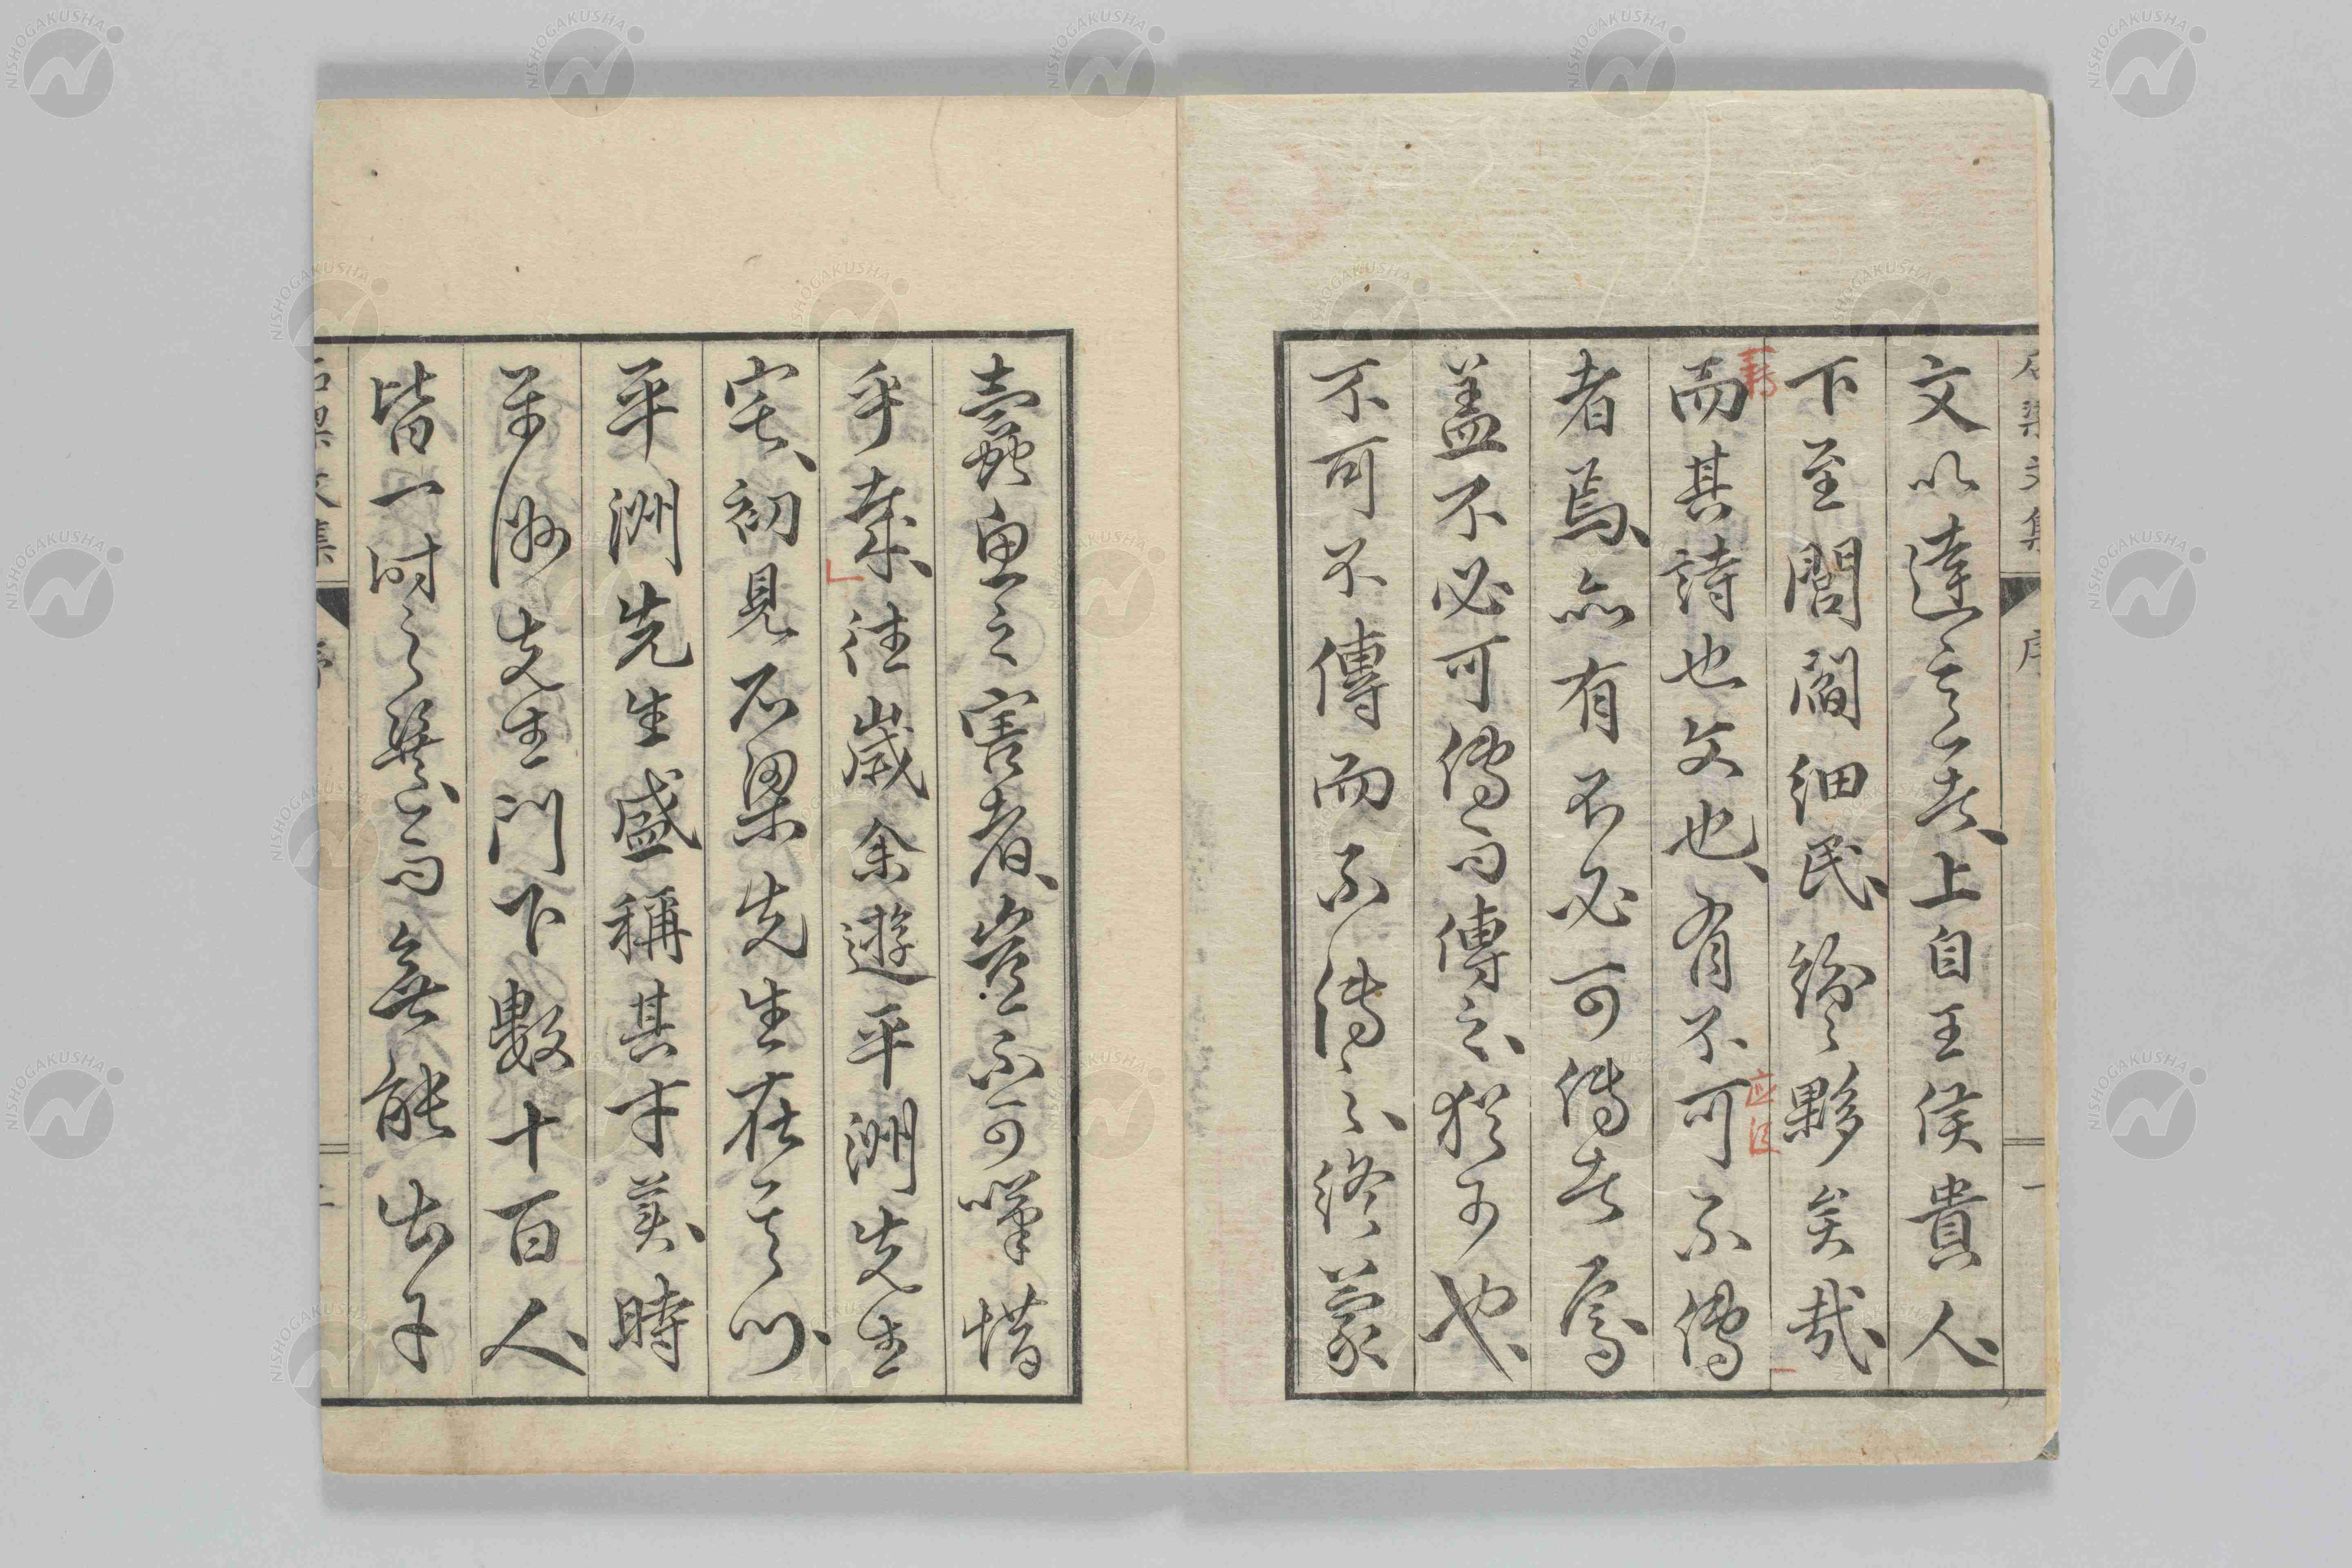 石梁文集 序 一
文以達意者、上自王侯貴人、
下至閭閻細民、紛々夥矣哉、
而其詩也文也、有不可不傳
者焉、亦有不必可傳者焉、
盖不必可傳而傳之、猶可也、
不可不傳而不傳之、終蒙
蠹魚之害者、豈不可嘆惜
乎哉、往歲余遊平洲先生
宅、初見石梁先生在其門、
平洲先生盛稱其才美、時
平洲先生門下數十百人、
皆一時之選、而無能出乎
石梁文集 序 二
NISHOGAKUSHA